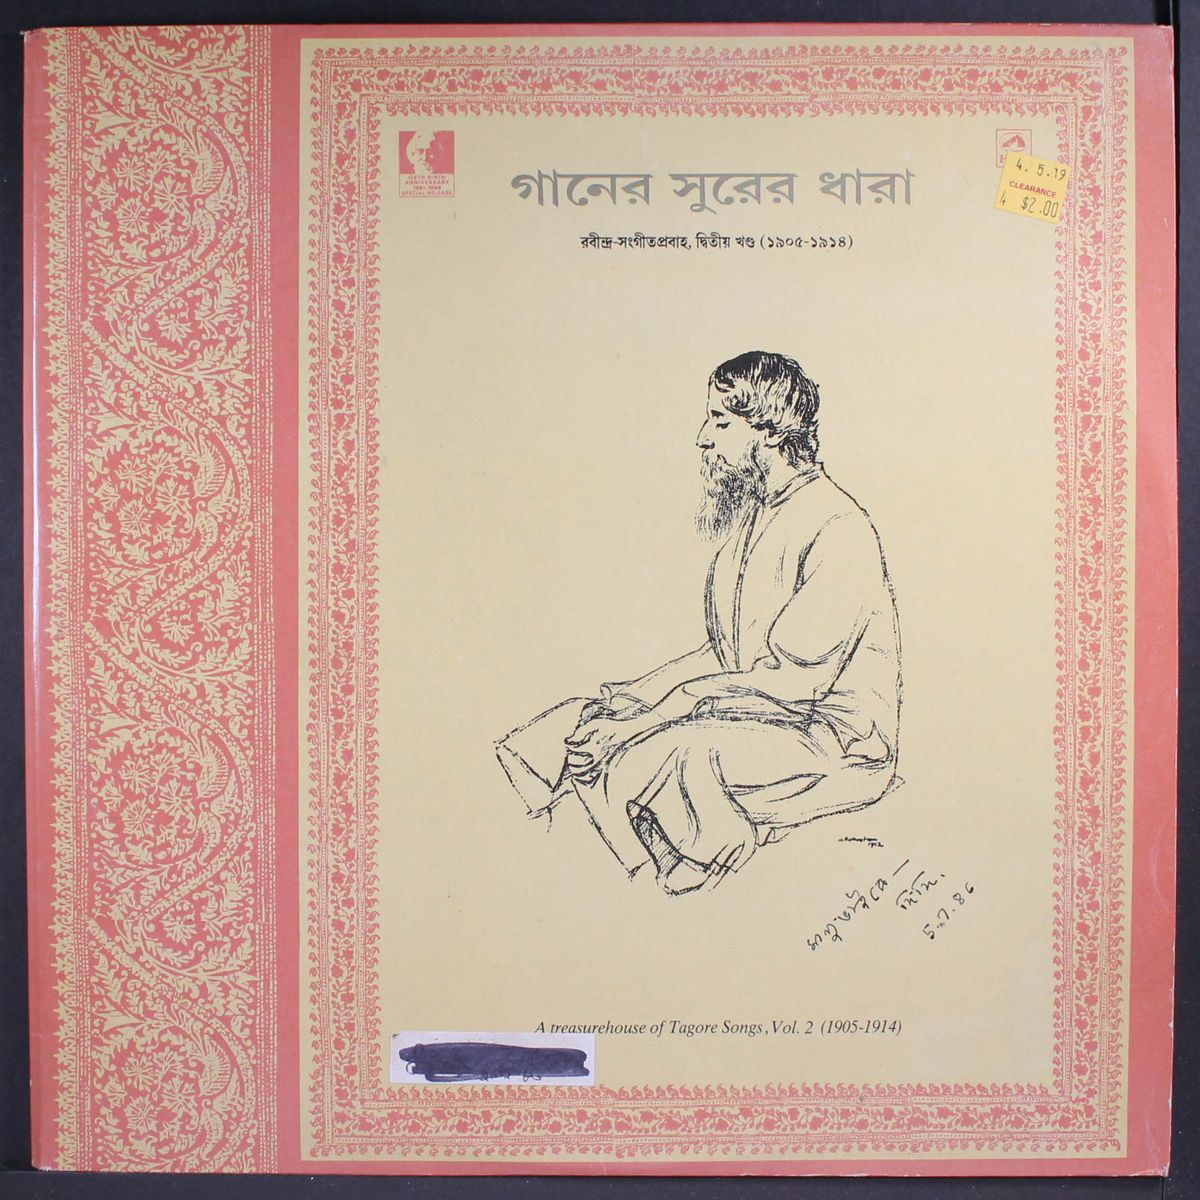 125TH BIRTH
ANNIVERSARY
1861-1986
SPECIAL RELEASE
4. 5. 19
CLEARANCE
4 $2.00
গানের সুরের ধারা
রবীন্দ্র-সংগীতপ্রবাহ, দ্বিতীয় খণ্ড (১৯০৫-১৯১৪)
1912
দিদি.
A treasurehouse of Tagore Songs, Vol. 2 (1905-1914)